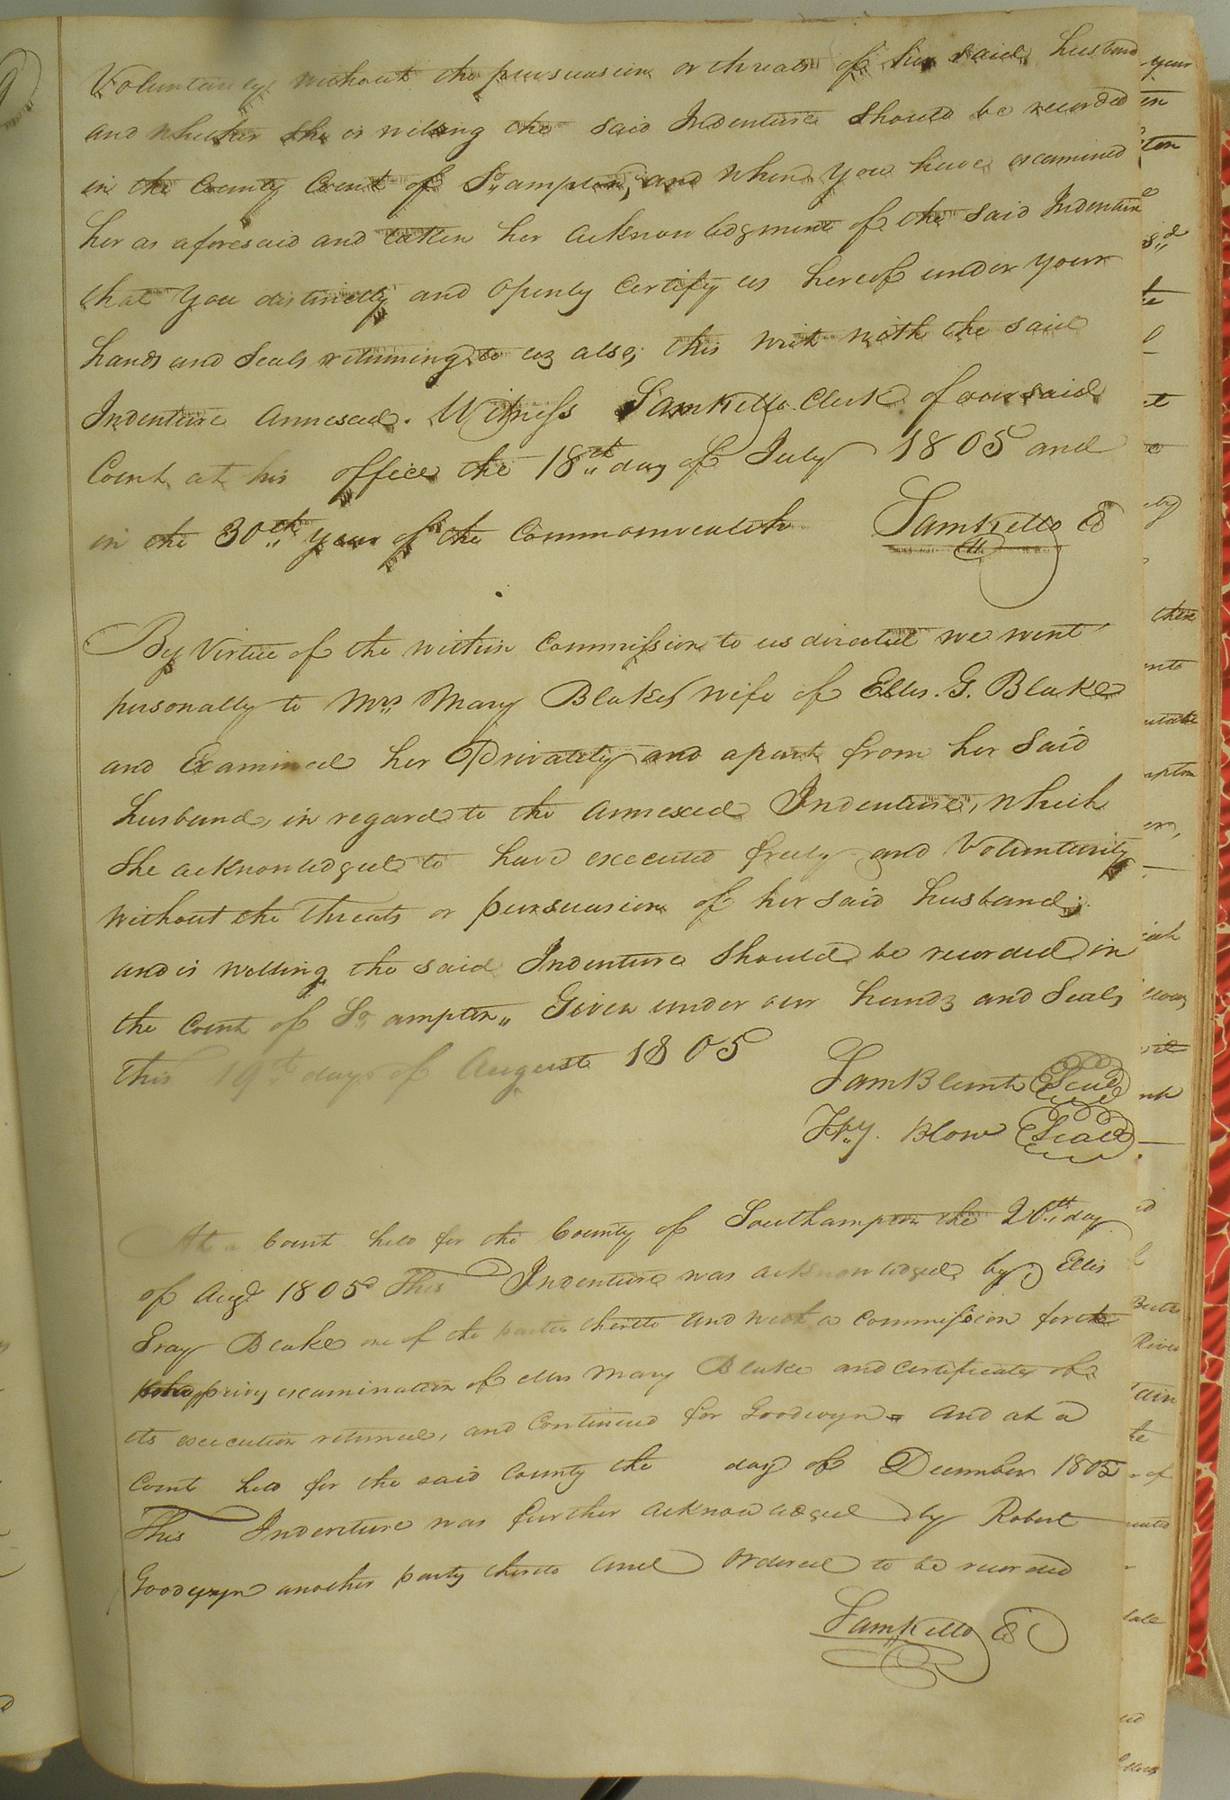 Voluntarily without the pursuasion or threats of her said husband
and whether she is willing the said Indenture should be recorded
in the County Court of So,,ampton, and when you have examined
her as aforesaid and taken her acknowledgment of the said Indenture
that you distinctly and openly certify us hereof under your
hands and seals returning to us also, this writ with the said
Indenture annexed. Witness Sam Kello Clerk of our said
Court at his office the 18th day of July 1805 and
in the 30th year of the Commonwealth Sam Kello
By Virtue of the within Commission to us directed we went
personally to Mrs Mary Blake wife of Ellis. G. Blake
and Examined her Privately and apart from her said
husband, in regard to the annexed Indenture, which
she acknowledged to have executed freely and Voluntarily
without the threats or pursuasion of her said husband,
and is willing the said Indenture should be recorded in
the Court of So ampton,, Given under our hands and Seals
this 19th day of August 1805
Sam Blunt Seal
Hy. Blow Seal
At a Court held for the County of Southampton the 20th day
of Augt 1805 This Indenture was acknowledged by Ellis
Gray Blake one of the parties thereto and with a commission for the
privy examination of Mrs Mary Blake and certificate of
its execution returned, and Continued for Goodwyn and at a
Court held for the said County the day of December 1805
This Indenture was further acknowledged by Robert
Goodwyn another party thereto and Ordered to be recorded
Sam Kello